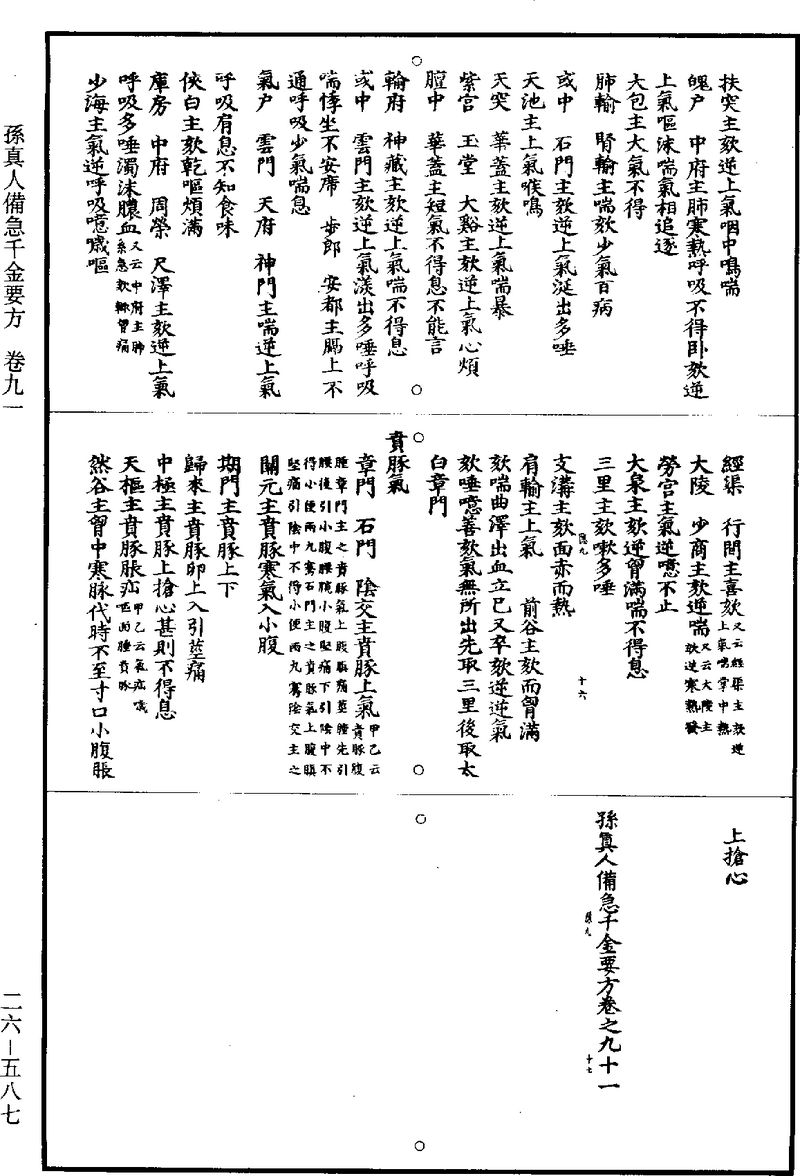 扶突主欬逆上氣咽中鳴喘
魄户　中府主肺寒熱呼吸不得卧欬逆
上氣嘔沫喘氣相追逐
大包主大氣不得息
肺輸　腎輸主喘欬少氣百病
或中　石門主欬逆上氣涎出多唾
天池主上氣喉鳴
天突　華蓋主欬逆上氣喘暴
紫宫　玉堂　大谿主欬逆上氣心煩
膻中　華蓋主短氣不得息不能言
輸府　神藏主欬逆上氣喘不得息
或中　雲門主欬逆上氣漾出多唾呼吸
喘悸坐不安席　步郎　安都主膈上不
通呼吸少氣喘息
氣户　雲門　天府　神門主喘逆上氣
呼吸肩息不知食味
俠白主欬乾嘔煩滿
庫房　中府　周榮　尺澤主欬逆上氣
呼吸多唾濁沫膿血又云中府主肺系急欬輒胷痛
少海主氣逆呼吸噫噦嘔
經渠　行間主喜欬又云經渠主欬逆上氣喘掌中熱
大陵　少商主欬逆喘又云大陵主欬逆寒熱發
勞宫主氣逆噫不止
大泉主欬逆胷滿喘不得息
三里主欬嗽多唾
支溝主欬面赤而熱
肩輸主上氣　前谷主欬而胷滿
欬喘曲澤出血立已又卒欬逆逆氣
欬唾噫善欬氣無所出先取三里後取太
白章門
賁豚氣
章門　石門　陰交主賁豚上氣甲乙云賁豚腹
腫章門主之賁豚氣上腹䐜痛莖腫先引
腰後引小腹腰髖小腹堅痛下引陰中不
得小便兩丸騫石門主之賁豚氣上腹䐜
堅痛引陰中不得小便兩丸騫陰交主之
關元主賁豚寒氣入小腹
期門主賁豚上下
歸來主賁豚卵上入引莖痛
中極主賁豚上搶心甚則不得息
天樞主賁豚脹疝甲乙云氣疝噦嘔面腫賁豚
然谷主胷中寒脉代時不至寸口小腹脹
上搶心
孫真人備急千金要方卷之九十一
十六
十七
孫真人備急千金要方　卷九一
二六—五八七